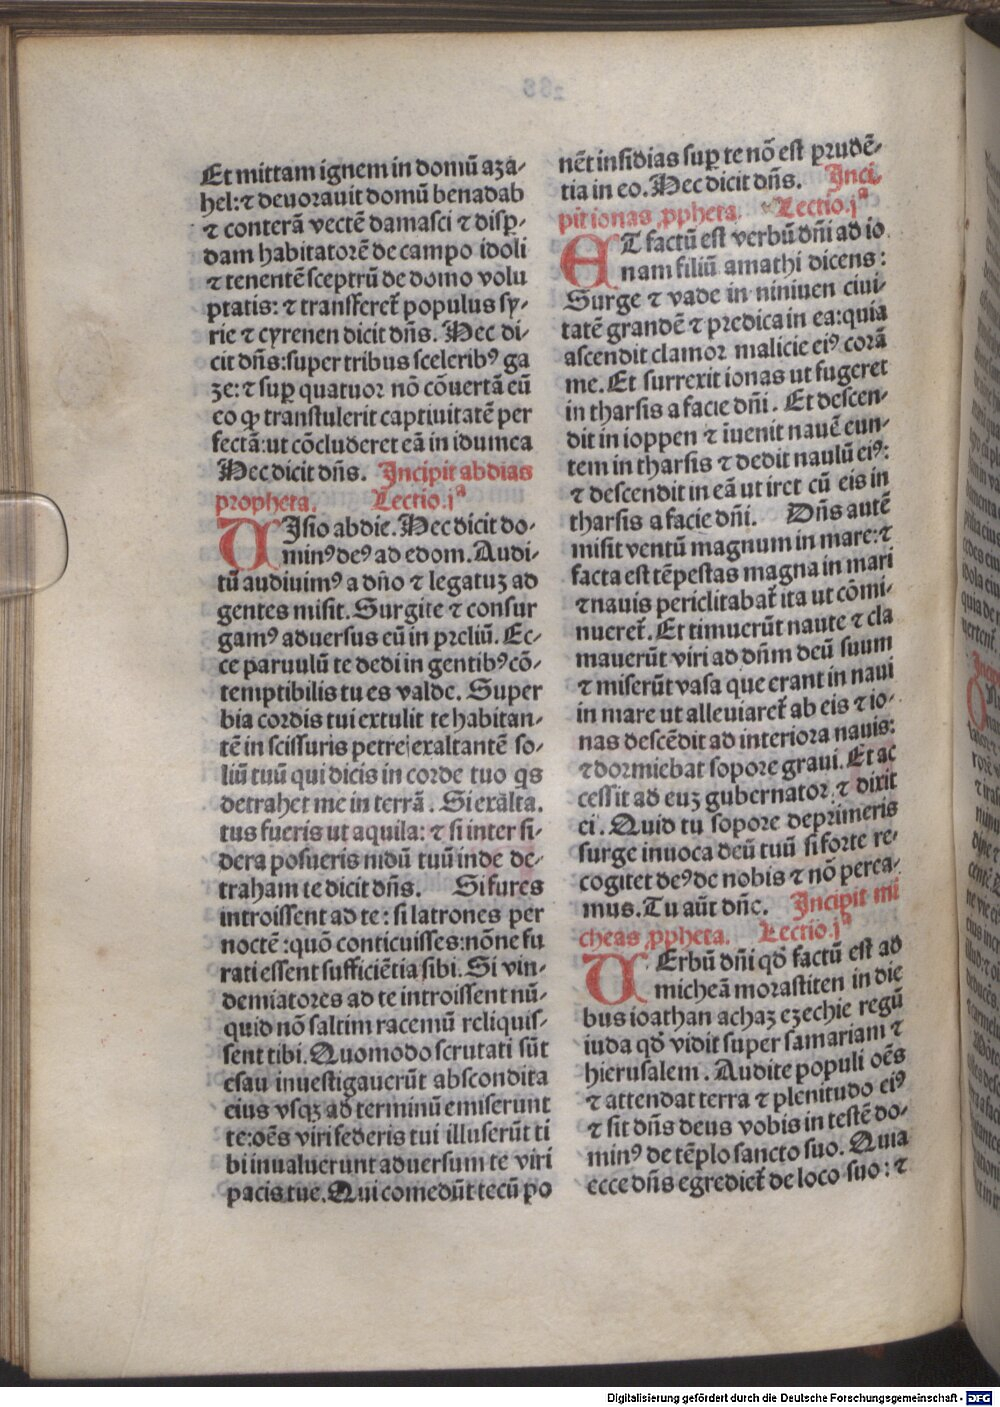 Et mittam ignem in domū aza⸗
hel: ⁊ deuorauit domū benadab
⁊ conterā vectē damasci ⁊ disꝑ⸗
dam habitatorē de campo idoli
⁊ tenentē sceptrū de domo volu
ptatis: ⁊ transferet᷑ populus sy⸗
rie ⁊ cyrenen dicit dn̄s. Hec di⸗
cit dn̄s: super tribus sceleribꝰ ga
ze: ⁊ suꝑ quatuor nō cōuertā eū
eo ꝙ transtulerit captiuitatē per
fectā: ut cōcluderet eā in idumea
Hec dicit dn̄s. Incipit abdias
propheta. Lectio.jª
VIsio abdie. Hec dicit do⸗
minꝰ deꝰ ad edom. Audi⸗
tū audiuimꝰ a dn̄o ⁊ legatuꝫ ad
gentes misit. Surgite ⁊ consur
gamꝰ aduersus eū in preliū. Ec⸗
ce paruulū te dedi in gentibꝰ cō⸗
temptibilis tu es valde. Super
bia cordis tui extulit te habitan⸗
tē in scissuris petre exaltantē so⸗
liū tuū qui dicis in corde tuo qͥs
detrahet me in terrā. Si exalta.
tus fueris ut aquila: ⁊ si inter si⸗
dera posueris nidū tuū inde de⸗
traham te dicit dn̄s. Si fures
introissent ad te: si latrones per
noctē: quō conticuisses: nōne fu
rati essent sufficiētia sibi. Si vin⸗
demiatores ad te introissent nū⸗
quid nō saltim racemū reliquis⸗
sent tibi. Quomodo scrutati sūt
esau inuestigauerūt abscondita
eius vsqꝫ ad terminū emiserunt
te: oēs viri federis tui illuserūt ti
bi inualuerunt aduersum te viri
pacis tue. Qui comedūt tecū po
nēt insidias suꝑ te nō est prudē⸗
tia in eo. Hec dicit dn̄s. Inci⸗
pit ionas ꝓpheta. Lectio.jª
ET factū est verbū dn̄i ad io
nam filiū amathi dicens:
Surge ⁊ vade in niniuen ciui⸗
tatē grandē ⁊ predica in ea: quia
ascendit clamor malicie eiꝰ corā
me. Et surrexit ionas ut fugeret
in tharsis a facie dn̄i. Et descen⸗
dit in ioppen ⁊ īuenit nauē eun⸗
tem in tharsis ⁊ dedit naulū eiꝰ:
⁊ descendit in eā ut iret cū eis in
tharsis a facie dn̄i. Dn̄s autē
misit ventū magnum in mare: ⁊
facta est tēpestas magna in mari
⁊ nauis periclitabat᷑ ita ut cōmi⸗
nueret᷑. Et timuerūt naute ⁊ cla
mauerūt viri ad dn̄m deū suum
⁊ miserūt vasa que erant in naui
in mare ut alleuiaret᷑ ab eis ⁊ io⸗
nas descēdit ad interiora nauis:
⁊ dormiebat sopore graui. Et ac
cessit ad euꝫ gubernator ⁊ dixit
ei. Quid tu sopore deprimeris
surge inuoca deū tuū si forte re⸗
cogitet deꝰ de nobis ⁊ nō perea⸗
mus. Tu aūt dn̄e. Incipit mi
cheas ꝓpheta. Lectio.jª
VErbū dn̄i qd̄ factū est ad
micheā morastiten in die
bus ioathan achaz ezechie regū
iuda qd̄ vidit super samariam ⁊
hierusalem. Audite populi oēs
⁊ attendat terra ⁊ plenitudo eiꝰ
⁊ sit dn̄s deus vobis in testē do⸗
minꝰ de tēplo sancto suo. Quia
ecce dn̄s egrediet᷑ de loco suo: ⁊
Digitalisierung gefördert durch die Deutsche Forschungsgemeinschaft - DFG